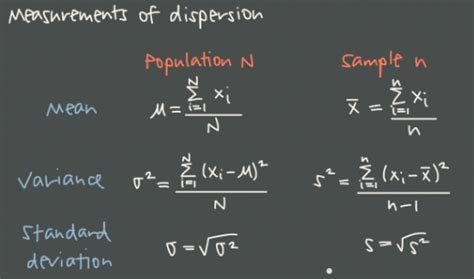 Measurements of dispersion
Population N Sample n
Mean μ = ∑ᵢ₌₁ᴺ xᵢ / N x̄ = ∑ᵢ₌₁ⁿ xᵢ / n
Variance σ² = ∑ᵢ₌₁ᴺ (xᵢ - μ)² / N s² = ∑ᵢ₌₁ⁿ (xᵢ - x̄)² / n-1
Standard
deviation σ = √σ² s = √s²